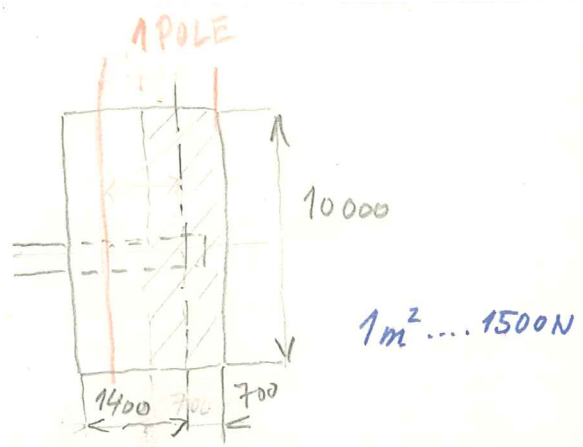 1 POLE
10 000
1m² .... 1500N
1400 700 700